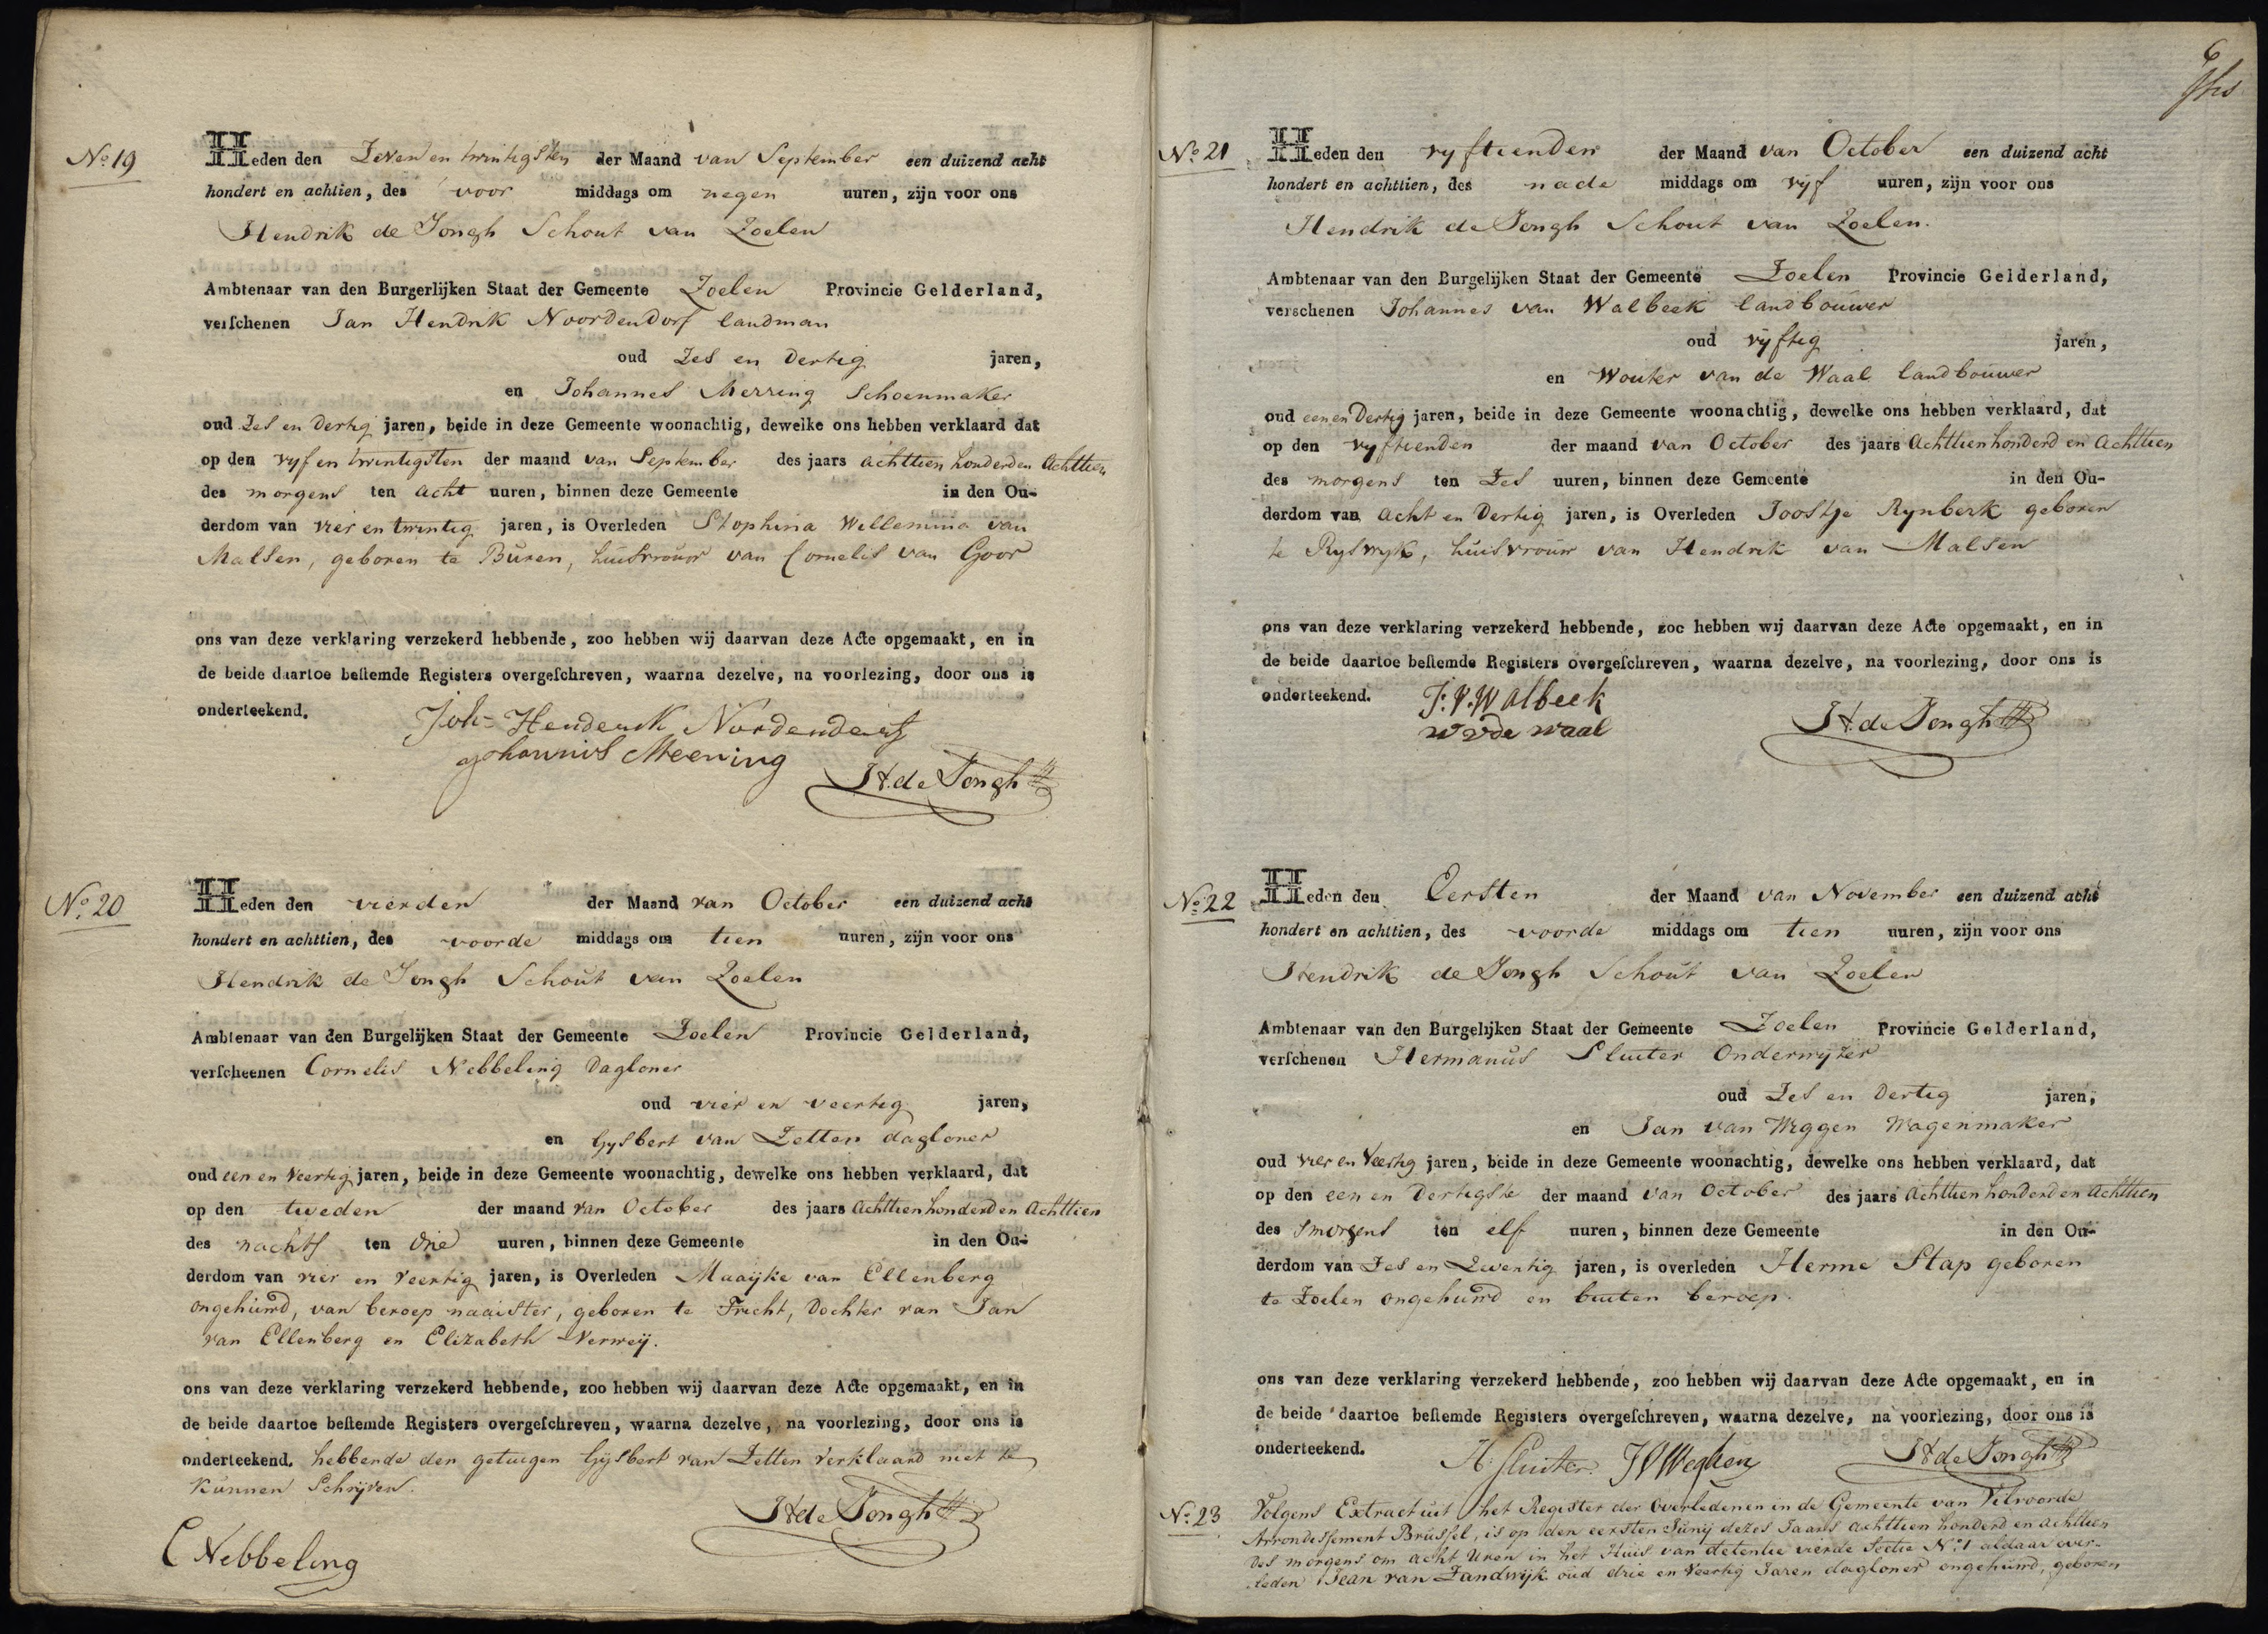 No. 19
Heden den Zeven en twintigsten der Maand van September een duizend acht
hondert en achtien, des voor middags om negen uuren, zijn voor ons
Hendrik de Jongh Schout van Zoelen
Ambtenaar van den Burgerlijken Staat der Gemeente Zoelen Provincie Gelderland,
verschenen Jan Hendrik Noordendorf landman
oud Zes en Dertig jaren,
en Johannes Merring Schoenmaker
oud Zes en dertig jaren, beide in deze Gemeente woonachtig, dewelke ons hebben verklaard dat
op den vyf en twintigsten der maand van September des jaars achttien honderd en Achttien
des morgens ten acht uuren, binnen deze Gemeente in den Ou-
derdom van vier en twintig jaren, is Overleden Stophina Willemina van
Malsen, geboren te Buren, huisvrouw van Cornelis van Goor
ons van deze verklaring verzekerd hebbende, zoo hebben wij daarvan deze Acte opgemaakt, en in
de beide daartoe bestemde Registers overgeschreven, waarna dezelve, na voorlezing, door ons is
onderteekend.
Joh= Henderik
Johannis Meering
H. de Jongh
No. 20
Heden den vierden der Maand van October een duizend acht
hondert en achttien, des voorde middags om tien uuren, zijn voor ons
Hendrik de Jongh Schout van Zoelen
Ambtenaar van den Burgelijken Staat der Gemeente Zoelen Provincie Gelderland,
verscheenen Cornelis Nebbeling Dagloner
oud vier en veertig jaren,
en Gysbert van Zetten dagloner
oud een en Veertig jaren, beide in deze Gemeente woonachtig, dewelke ons hebben verklaard, dat
op den tweden der maand van October des jaars Achttien honderd en Achttien
des nachts ten drie uuren, binnen deze Gemeente in den Ou-
derdom van vier en Veertig jaren, is Overleden Maaijke van Ellenberg
ongehuwd, van beroep naaister, geboren te Tricht, Dochter van Jan
van Ellenberg en Elizabeth Verweij.
ons van deze verklaring verzekerd hebbende, zoo hebben wij daarvan deze Acte opgemaakt, en in
de beide daartoe bestemde Registers overgeschreven, waarna dezelve, na voorlezing, door ons is
onderteekend. hebbende den getuigen Gijsbert van Zetten verklaard niet te
kunnen Schrijven.
H de Jongh
C Nebbeling
6
No. 21
Heden den vyftienden der Maand van October een duizend acht
hondert en achttien, des nade middags om vyf uuren, zijn voor ons
Hendrik de Jongh Schout van Zoelen.
Ambtenaar van den Burgelijken Staat der Gemeente Zoelen Provincie Gelderland,
verschenen Johannes van Walbeek landbouwer
oud vyftig jaren,
en Wouter van de Waal landbouwer
oud een en Dertig jaren, beide in deze Gemeente woonachtig, dewelke ons hebben verklaard, dat
op den vyftienden der maand van October des jaars Achttien honderd en Achttien
des morgens ten Zes uuren, binnen deze Gemeente in den Ou-
derdom van acht en Dertig jaren, is Overleden Joostje Rynberk geboren
te Ryswyk, huisvrouw van Hendrik van Malsen
ons van deze verklaring verzekerd hebbende, zoo hebben wij daarvan deze Acte opgemaakt, en in
de beide daartoe bestemde Registers overgeschreven, waarna dezelve, na voorlezing, door ons is
onderteekend.
J. V. Walbeek
w vde waal
H. de Jongh
No. 22
Heden den Eersten der Maand van November een duizend acht
hondert en achttien, des voorde middags om tien uuren, zijn voor ons
Hendrik de Jongh Schout van Zoelen
Ambtenaar van den Burgelijken Staat der Gemeente Zoelen Provincie Gelderland,
verschenen Hermanus Sluiter Onderwyzer
oud Zes en Dertig jaren,
en Jan van Weggen Wagenmaker
oud vier en Veertig jaren, beide in deze Gemeente woonachtig, dewelke ons hebben verklaard, dat
op den een en Dertigste der maand van October des jaars Achttien honderd en Achttien
des smorgens ten elf uuren, binnen deze Gemeente in den Ou-
derdom van Zes en Zeventig jaren, is overleden Herme Stap geboren
te Zoelen ongehuwd en buiten beroep.
ons van deze verklaring verzekerd hebbende, zoo hebben wij daarvan deze Acte opgemaakt, en in
de beide daartoe bestemde Registers overgeschreven, waarna dezelve, na voorlezing, door ons is
onderteekend.
H. Sluiter. J V Weghen H de Jongh
No. 23
Volgens Extract uit het Register der Overledenen in de Gemeente van Vilvoorde
Arrondissement Brussel, is op den eersten Junij dezes Jaars achttien honderd en achttien
des morgens om acht Uren in het Huis van detentie vierde Sectie No. 1 aldaar over-
leden Jean van Zandwijk oud drie en Veertig Jaren dagloner ongehuwd, geboren